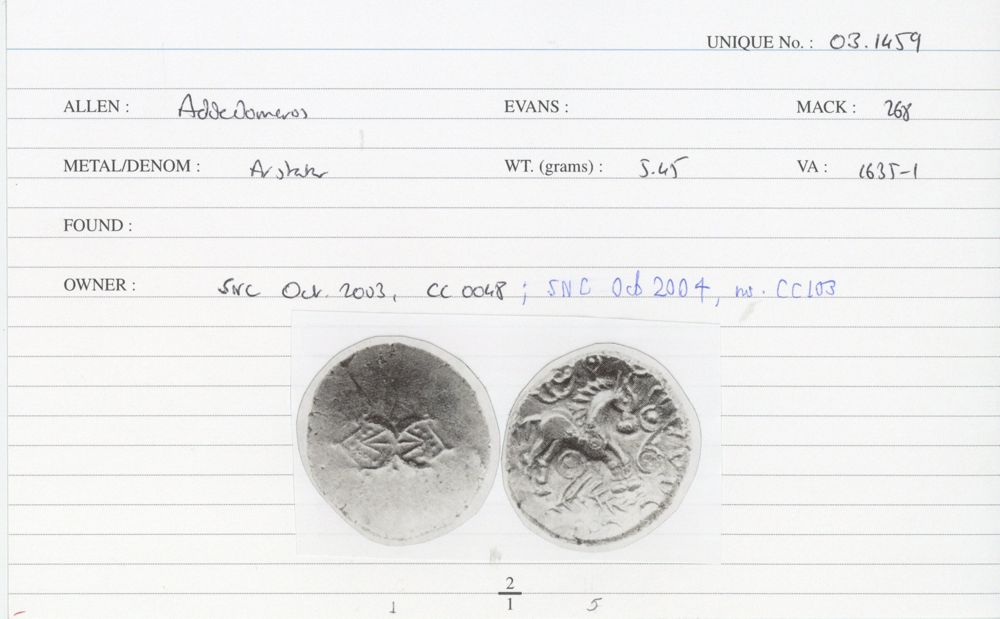 UNIQUE No. : 03.1459
ALLEN : Addedomeros EVANS : MACK : 268
METAL/DENOM : AV stater WT. (grams) : 5.45 VA : 1635-1
FOUND :
OWNER : SNC Oct. 2003, CC0048 ; SNC Oct 2004, no. CC103
2
1
1 5